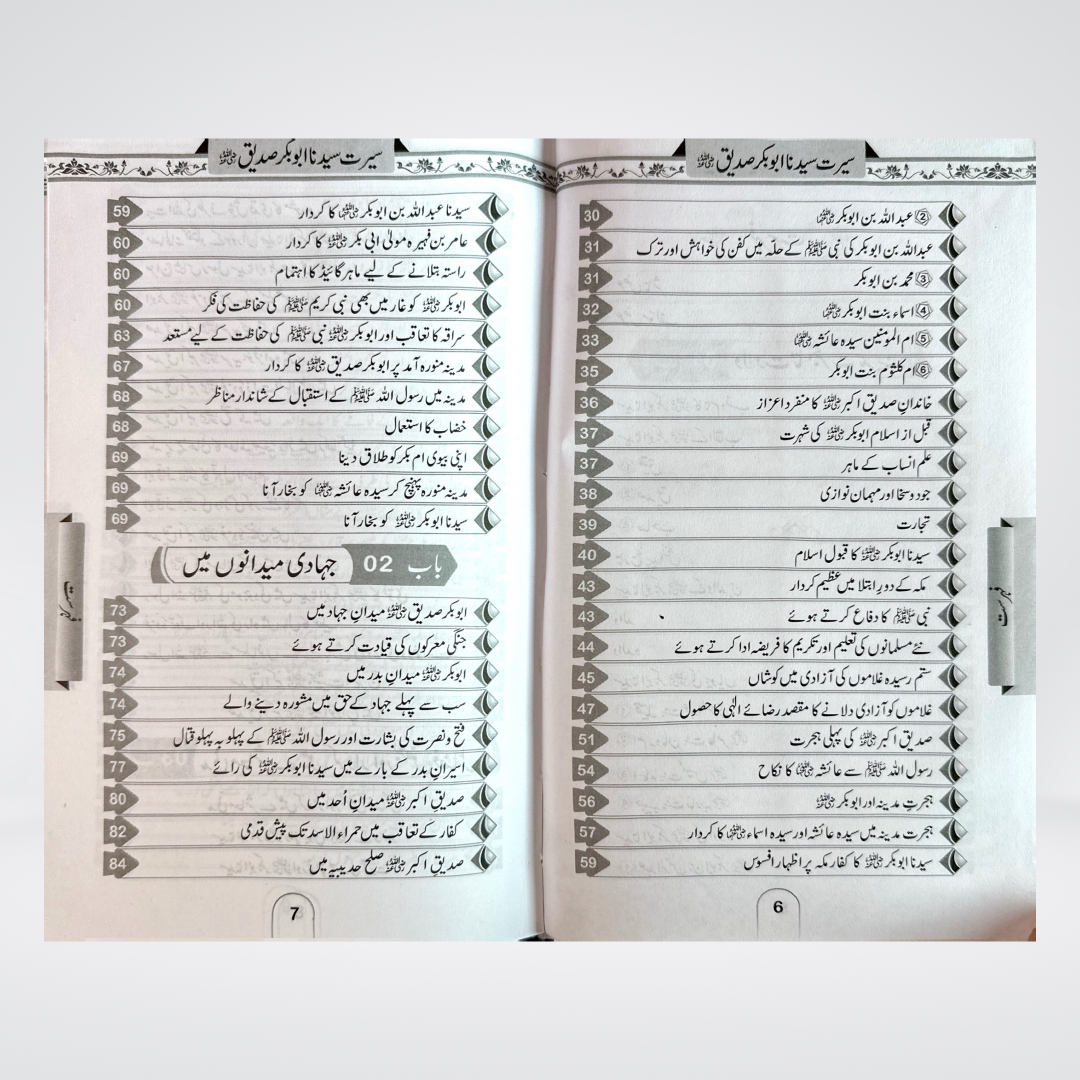 سیرت سیدنا ابوبکر صدیق رضی اللہ عنہ
② عبداللہ بن ابوبکر رضی اللہ عنہما 30
عبداللہ بن ابوبکر کی نبی ﷺ کے حلّہ میں کفن کی خواہش اور ترک 31
③ محمد بن ابوبکر 31
④ اسماء بنت ابوبکر رضی اللہ عنہما 32
⑤ ام المومنین سیدہ عائشہ رضی اللہ عنہا 33
⑥ ام کلثوم بنت ابوبکر 35
خاندانِ صدیق اکبر رضی اللہ عنہ کا منفرد اعزاز 36
قبل از اسلام ابوبکر رضی اللہ عنہ کی شہرت 37
علم انساب کے ماہر 37
جود و سخا اور مہمان نوازی 38
تجارت 39
سیدنا ابوبکر رضی اللہ عنہ کا قبول اسلام 40
مکہ کے دورِ ابتلا میں عظیم کردار 43
نبی ﷺ کا دفاع کرتے ہوئے 43
نئے مسلمانوں کی تعلیم اور تکریم کا فریضہ ادا کرتے ہوئے 44
ستم رسیدہ غلاموں کی آزادی میں کوشاں 45
غلاموں کو آزادی دلانے کا مقصد رضائے الٰہی کا حصول 47
صدیق اکبر رضی اللہ عنہ کی پہلی ہجرت 51
رسول اللہ ﷺ سے عائشہ رضی اللہ عنہا کا نکاح 54
ہجرتِ مدینہ اور ابوبکر رضی اللہ عنہ 56
ہجرت مدینہ میں سیدہ عائشہ اور سیدہ اسماء رضی اللہ عنہما کا کردار 57
سیدنا ابوبکر رضی اللہ عنہ کا کفار مکہ پر اظہار افسوس 59
فہرست
6
سیرت سیدنا ابوبکر صدیق رضی اللہ عنہ
سیدنا عبداللہ بن ابوبکر رضی اللہ عنہما کا کردار 59
عامر بن فہیرہ مولیٰ ابی بکر رضی اللہ عنہ کا کردار 60
راستہ بتلانے کے لیے ماہر گائیڈ کا اہتمام 60
ابوبکر رضی اللہ عنہ کو غار میں بھی نبی کریم ﷺ کی حفاظت کی فکر 60
سراقہ کا تعاقب اور ابوبکر رضی اللہ عنہ نبی ﷺ کی حفاظت کے لیے مستعد 63
مدینہ منورہ آمد پر ابوبکر صدیق رضی اللہ عنہ کا کردار 67
مدینہ میں رسول اللہ ﷺ کے استقبال کے شاندار مناظر 68
خضاب کا استعمال 68
اپنی بیوی ام بکر کو طلاق دینا 69
مدینہ منورہ پہنچ کر سیدہ عائشہ رضی اللہ عنہا کو بخار آنا 69
سیدنا ابوبکر رضی اللہ عنہ کو بخار آنا 69
باب 02 جہادی میدانوں میں
ابوبکر صدیق رضی اللہ عنہ میدانِ جہاد میں 73
جنگی معرکوں کی قیادت کرتے ہوئے 73
ابوبکر رضی اللہ عنہ میدانِ بدر میں 74
سب سے پہلے جہاد کے حق میں مشورہ دینے والے 74
فتح و نصرت کی بشارت اور رسول اللہ ﷺ کے پہلو بہ پہلو قتال 75
اسیرانِ بدر کے بارے میں سیدنا ابوبکر رضی اللہ عنہ کی رائے 77
صدیق اکبر رضی اللہ عنہ میدانِ اُحد میں 80
کفار کے تعاقب میں حمراء الاسد تک پیش قدمی 82
صدیق اکبر رضی اللہ عنہ صلح حدیبیہ میں 84
فہرست
7